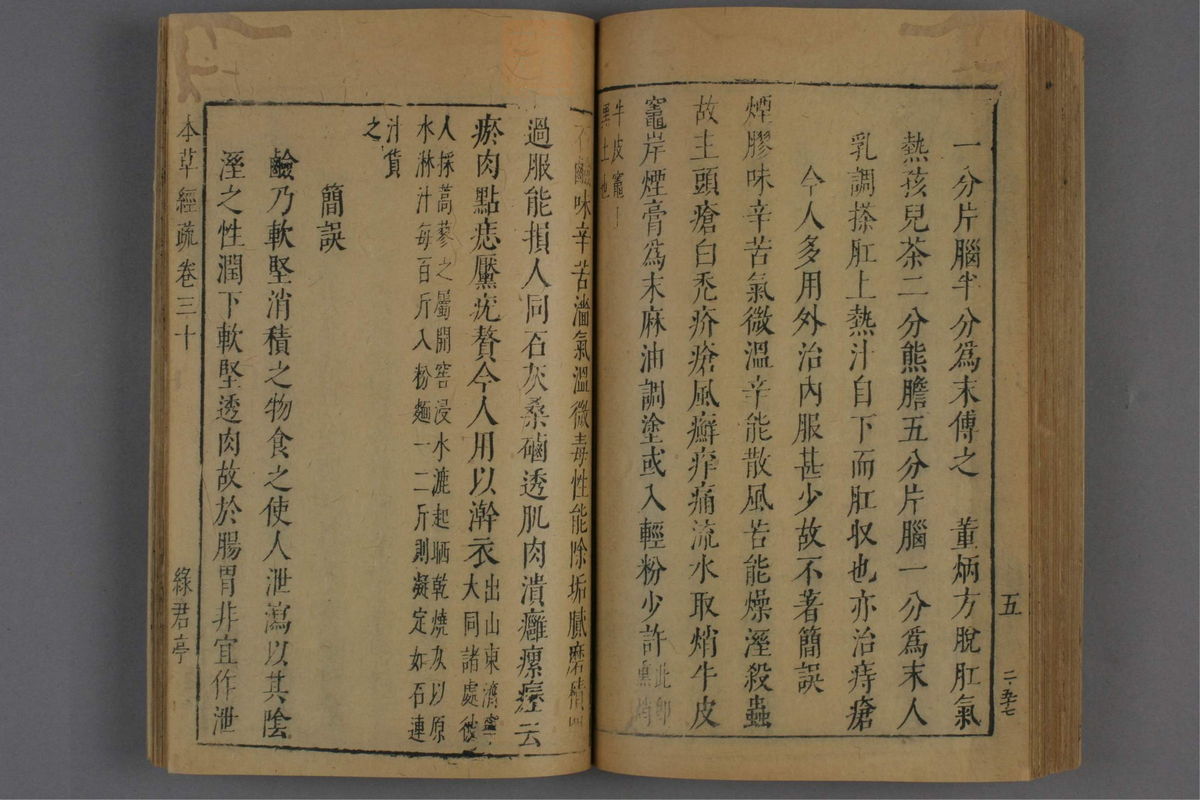 一分片腦半分爲末傅之　董炳方脫肛氣
熱孩兒茶二分熊膽五分片腦一分爲末人
乳調搽肛上熱汁自下而肛収也亦治痔瘡
今人多用外治內服甚少故不著簡誤
煙膠味辛苦氣微溫辛能散風苦能燥溼殺蟲
故主頭瘡白禿疥瘡風癬痒痛流水取焇牛皮
竈岸煙膏爲末麻油調塗或入輕粉少許
牛皮竈
黑土也
五
二·五十七
石鹼味辛苦濇氣溫微毒性能除垢膩磨積
過服能損人同石灰桑磠透肌肉潰癰瘰癧去
瘀肉點痣黶疣贅今人用以澣衣
出山東濟寧
大同諸處彼
人採蒿蓼之屬開窖浸水漉起晒乾燒灰以原
水淋汁每百斤入粉麵一二斤則凝定如石連
汁貨
之
簡誤
鹼乃軟堅消積之物食之使人泄瀉以其陰
溼之性潤下軟堅透肉故於腸胃非宜作泄
本草經疏 卷三十
綠君亭